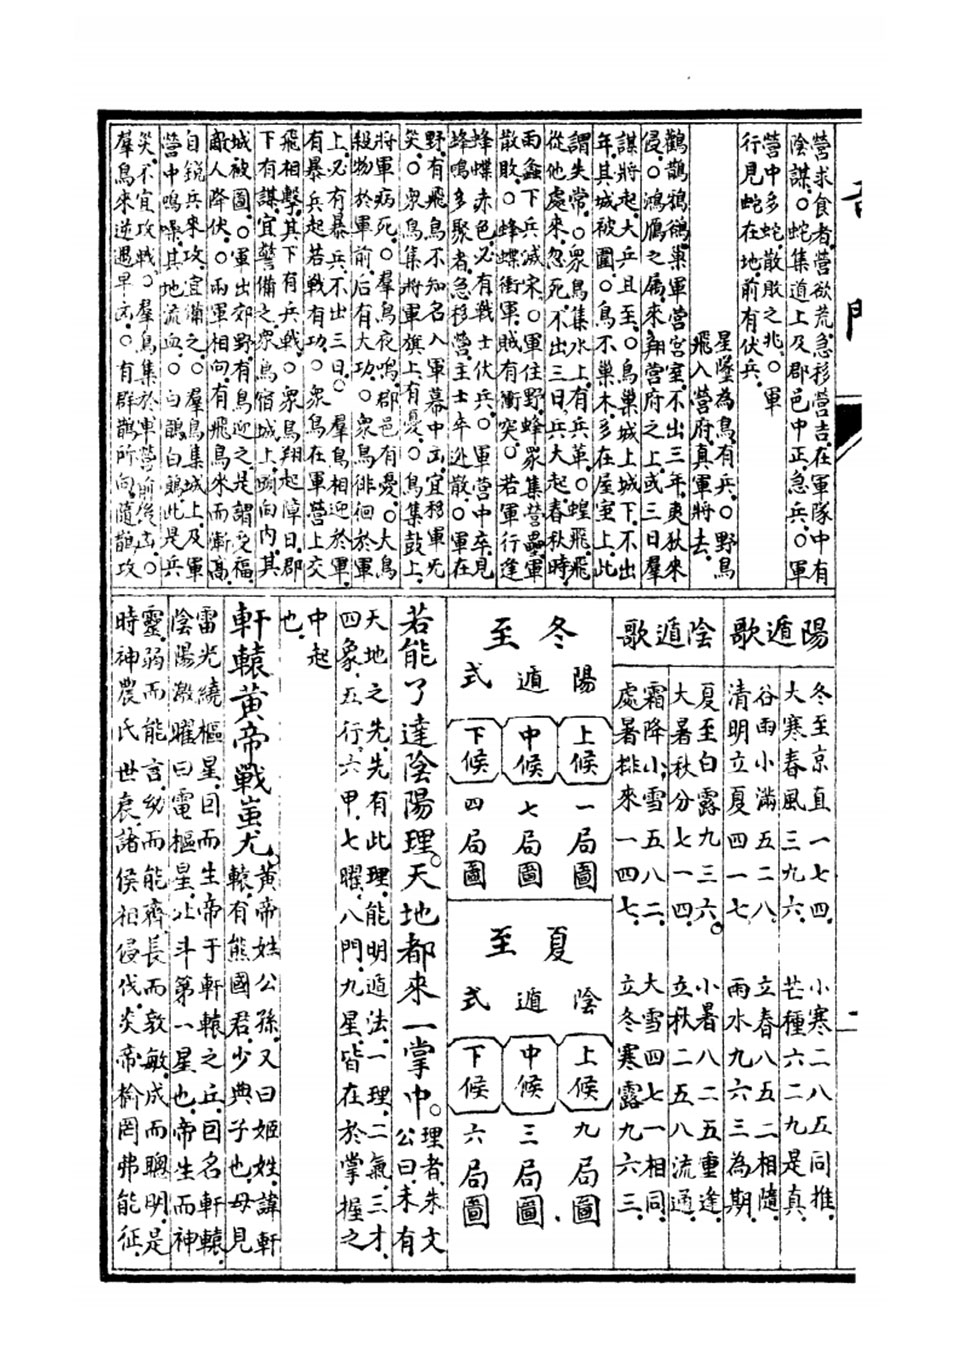 奇門
二
營求食者營欲荒急移營吉在軍隊中有
陰謀○蛇集道上及郡邑中正急兵○軍
營中多蛇散敗之兆○軍
行見蛇在地前有伏兵
星墜為鳥有兵○野鳥
飛入營府真軍將去
鸛鵲鵂鶹巢軍營宮室不出三年夷狄來
侵○鴻鴈之屬來翔營府之上或三日羣
謀將起大兵且至○鳥巢城上城下不出
年其城被圍○鳥不巢木多在屋室上此
謂失常○衆鳥集水上有兵革○蝗飛飛
從他處來忽死不出三日兵大起春秋時
雨螽下兵滅宋○軍住野蜂衆集營壘軍
散敗○蜂蝶衝軍賊有衝突○若軍行逢
蜂蝶赤色必有戰士伏兵○軍營中卒見
蜂鳴多聚者急移營主士卒逃散○軍在
野有飛鳥不知名入軍幕中凶宜移軍尤
災○衆鳥集將軍旗上有憂○鳥集鼓上
將軍病死○羣鳥夜鳴郡邑有憂○大鳥
殺物於軍前后有大功○衆鳥徘徊於軍
上必有暴兵不出三日○羣鳥相迎於軍
有暴兵起若戰有功○衆鳥在軍營上交
飛相擊其下有兵戰○衆鳥翔起障日郡
下有謀宜警備之衆鳥宿城上頭向內其
城被圍○軍出郊野有鳥迎之是謂受福
敵人降伏○兩軍相向有飛鳥來而漸高
自銳兵來攻宜備之○羣鳥集城上及軍
營中鳴噪其地流血○白鵲白鷴此是兵
災不宜攻戰○羣鳥集於軍營前後吉○
羣鳥來逆遇早凶○有群鵲所向隨鵲攻
陽遁歌
冬至京直一七四 小寒二八五同推
大寒春風三九六 芒種六二九是真
谷雨小滿五二八 立春八五二相隨
清明立夏四一七 雨水九六三為期
陰遁歌
夏至白露九三六 小暑八二五重逢
大暑秋分七一四 立秋二五八流通
霜降小雪五八二 大雪四七一相同
處暑排來一四七 立冬寒露九六三
冬至
陽遁式
上候 一局圖
中候 七局圖
下候 四局圖
夏至
陰遁式
上候 九局圖
中候 三局圖
下候 六局圖
若能了達陰陽理○天地都來一掌中○
理者朱文
公曰未有
天地之先先有此理能明遁法一理二氣三才
四象五行六甲七曜八門九星皆在於掌握之
中起
也
軒轅黃帝戰蚩尤
黃帝姓公孫又曰姬姓諱軒
轅有熊國君少典子也母見
雷光繞樞星回而生帝于軒轅之丘因名軒轅
陰陽激曜曰電樞星北斗第一星也帝生而神
靈弱而能言幼而能齊長而敦敏成而聰明是
時神農氏世衰諸侯相侵伐炎帝榆罔弗能征